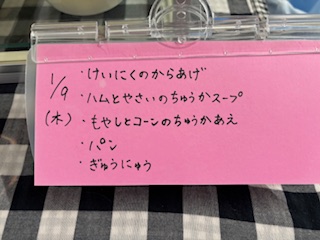 1/9 ・けいにくのからあげ
・ハムとやさいのちゅうかスープ
(木) ・もやしとコーンのちゅうかあえ
・パン
・ぎゅうにゅう